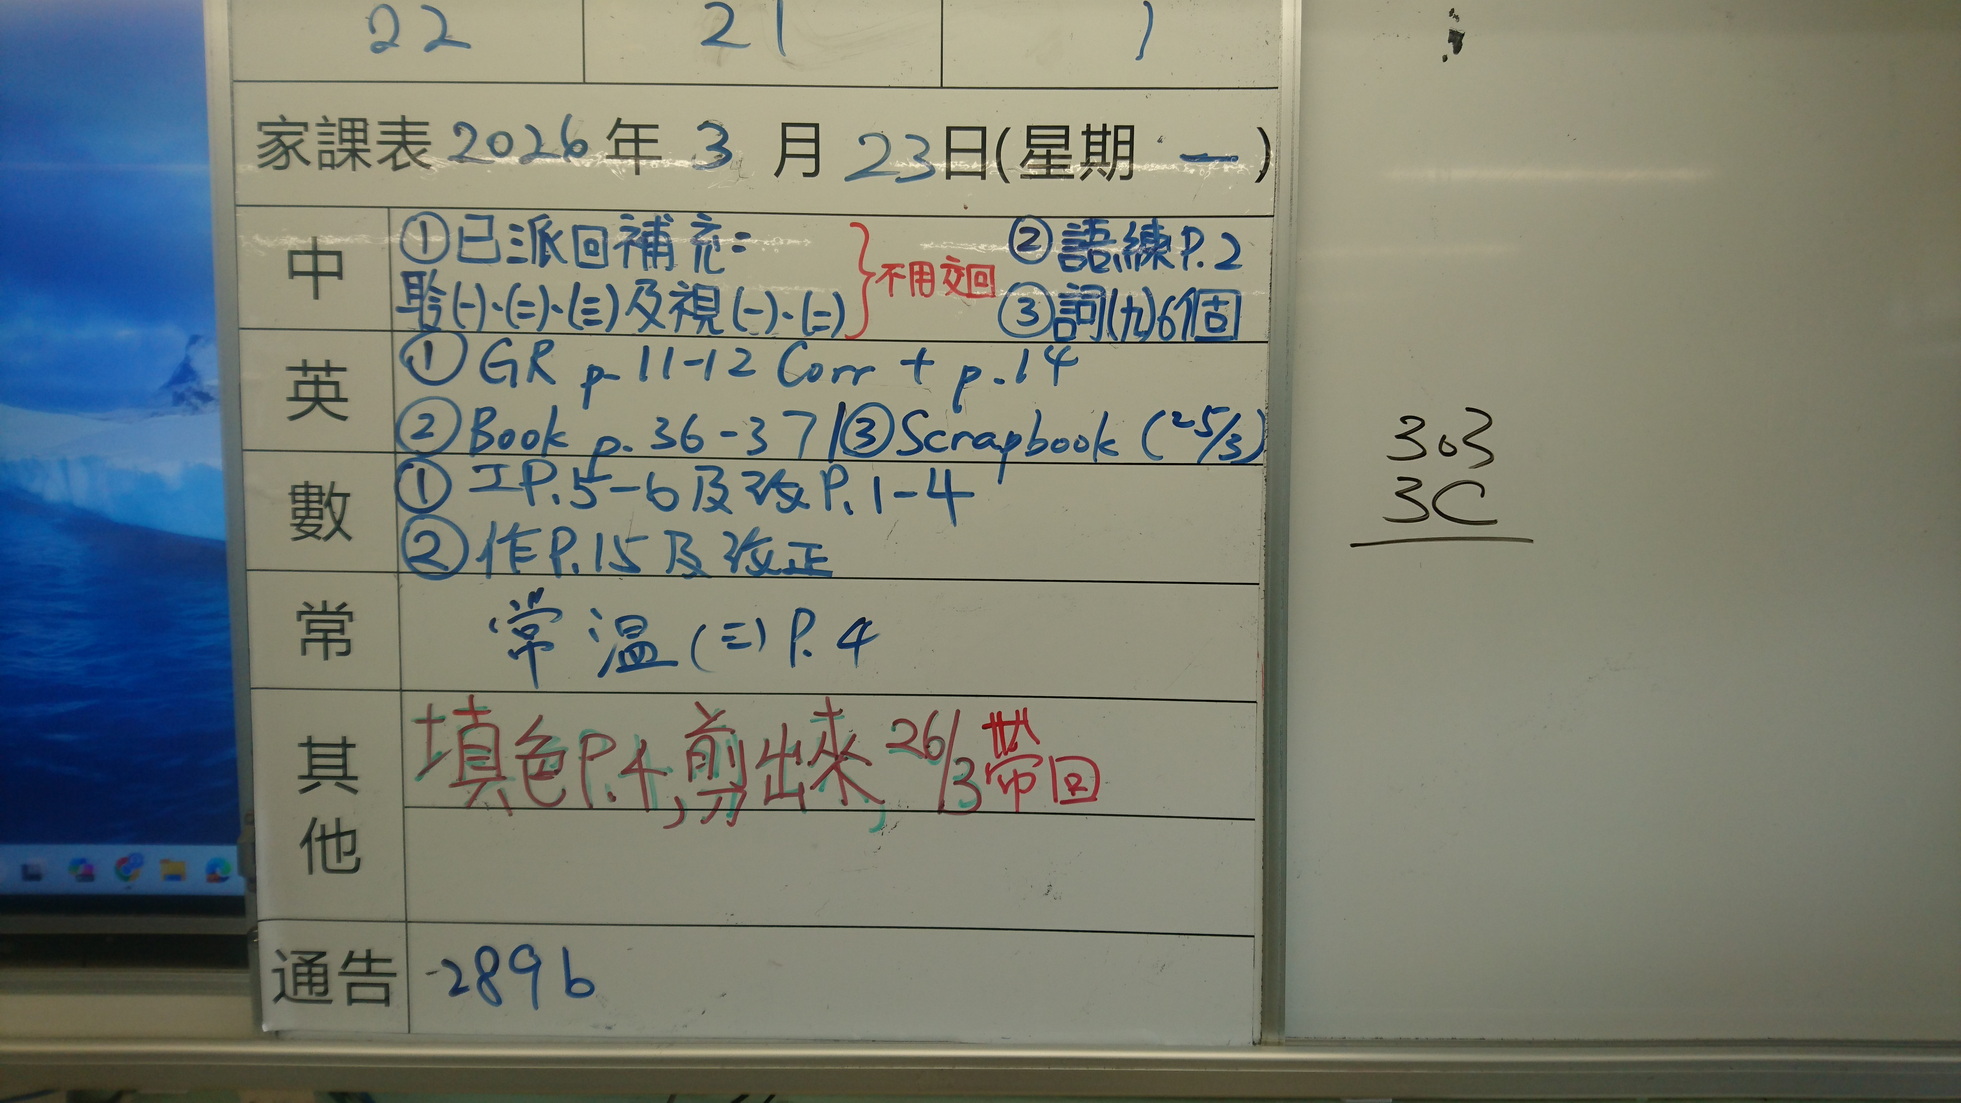 22 21 1
家課表 2026年 3月 23日(星期一)
中 ①已派回補充:
聆(一)、(二)、(三)及視(一)、(二) } 不用交回
②語練P.2
③詞(九)6個
英 ① GR p. 11-12 Corr + p.14
② Book p. 36-37 / ③ Scrapbook (25/3)
數 ① 工P.5-6及改P.1-4
② 作P.15及改正
常 常溫(三)P.4
其他 填色P.4,剪出來,26/3帶回
通告 -289b
303
3C